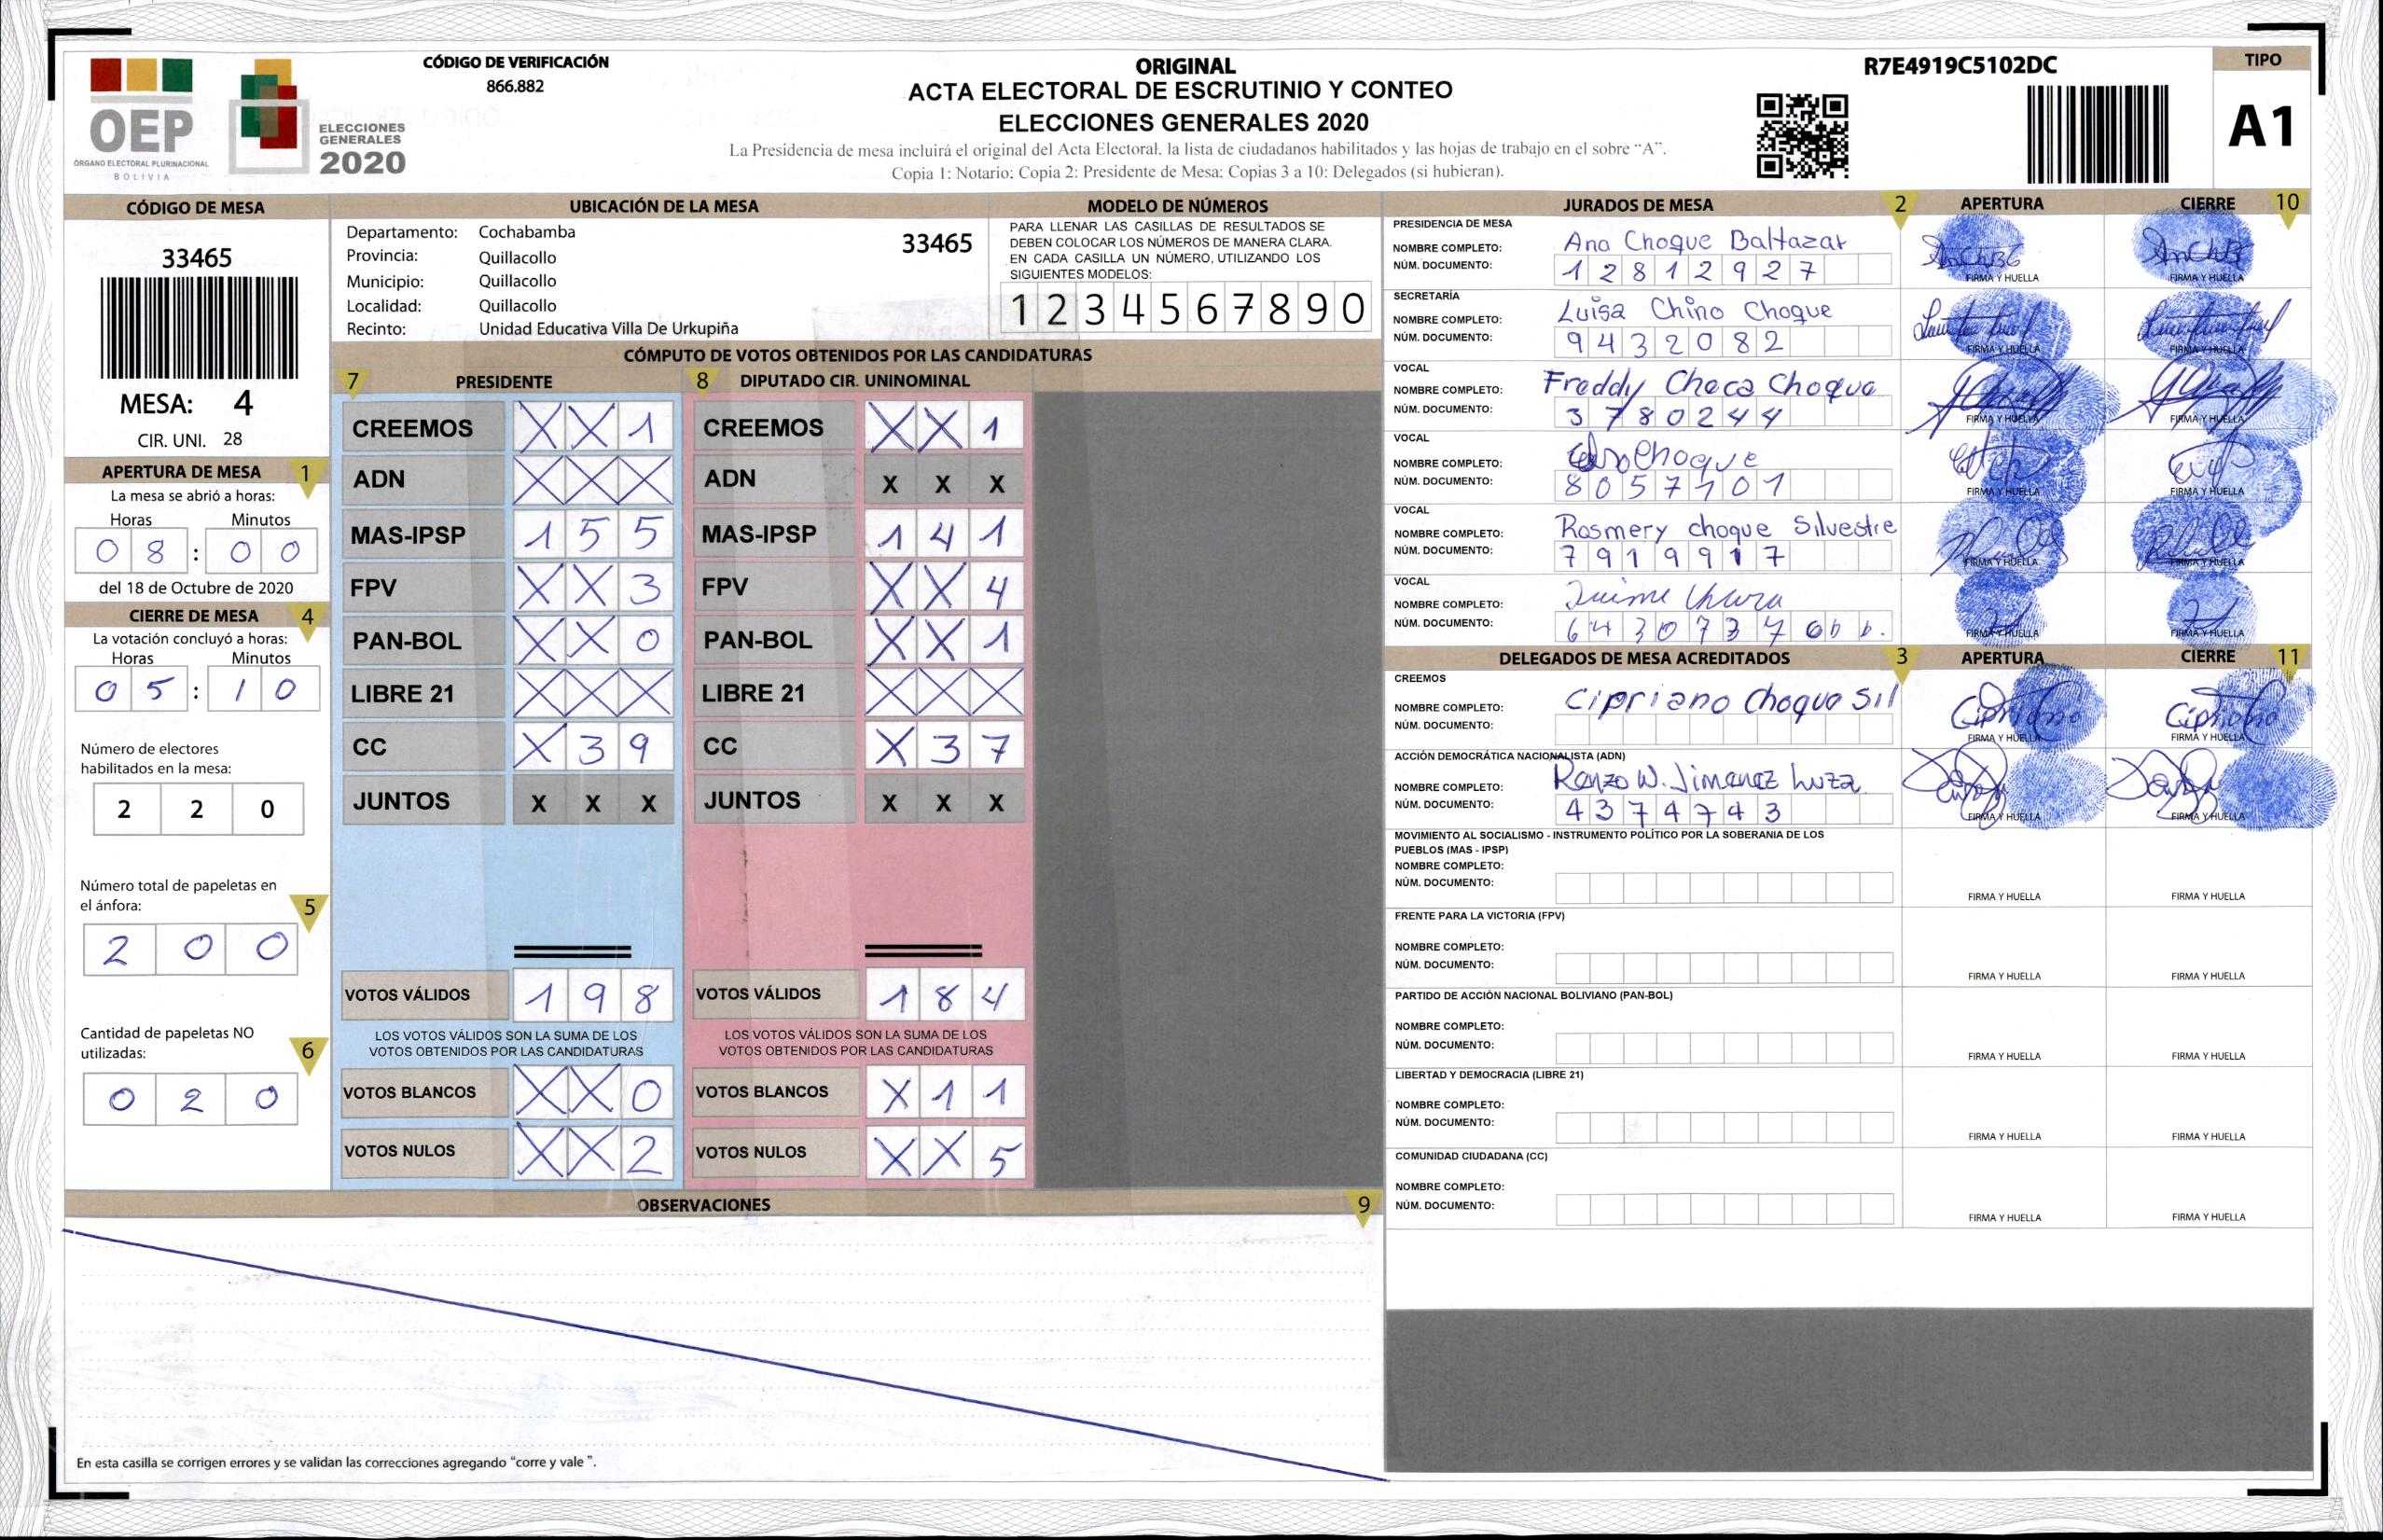 CÓDIGO DE VERIFICACIÓN
866.882
ORIGINAL
ACTA ELECTORAL DE ESCRUTINIO Y CONTEO
ELECCIONES GENERALES 2020
La Presidencia de mesa incluirá el original del Acta Electoral, la lista de ciudadanos habilitados y las hojas de trabajo en el sobre "A".
Copia 1: Notario; Copia 2: Presidente de Mesa; Copias 3 a 10: Delegados (si hubieran).
R7E4919C5102DC
TIPO
A1
OEP
ÓRGANO ELECTORAL PLURINACIONAL
BOLIVIA
ELECCIONES
GENERALES
2020
CÓDIGO DE MESA
33465
MESA: 4
CIR. UNI. 28
APERTURA DE MESA 1
La mesa se abrió a horas:
Horas Minutos
0 8 : 0 0
del 18 de Octubre de 2020
CIERRE DE MESA 4
La votación concluyó a horas:
Horas Minutos
0 5 : 1 0
Número de electores
habilitados en la mesa:
2 2 0
Número total de papeletas en
el ánfora: 5
2 0 0
Cantidad de papeletas NO
utilizadas: 6
0 2 0
UBICACIÓN DE LA MESA
Departamento: Cochabamba 33465
Provincia: Quillacollo
Municipio: Quillacollo
Localidad: Quillacollo
Recinto: Unidad Educativa Villa De Urkupiña
MODELO DE NÚMEROS
PARA LLENAR LAS CASILLAS DE RESULTADOS SE
DEBEN COLOCAR LOS NÚMEROS DE MANERA CLARA.
EN CADA CASILLA UN NÚMERO, UTILIZANDO LOS
SIGUIENTES MODELOS:
1 2 3 4 5 6 7 8 9 0
CÓMPUTO DE VOTOS OBTENIDOS POR LAS CANDIDATURAS
7 PRESIDENTE 8 DIPUTADO CIR. UNINOMINAL
CREEMOS X X 1 CREEMOS X X 1
ADN X X X ADN X X X
MAS-IPSP 1 5 5 MAS-IPSP 1 4 1
FPV X X 3 FPV X X 4
PAN-BOL X X 0 PAN-BOL X X 1
LIBRE 21 X X X LIBRE 21 X X X
CC X 3 9 CC X 3 7
JUNTOS X X X JUNTOS X X X
VOTOS VÁLIDOS 1 9 8 VOTOS VÁLIDOS 1 8 4
LOS VOTOS VÁLIDOS SON LA SUMA DE LOS LOS VOTOS VÁLIDOS SON LA SUMA DE LOS
VOTOS OBTENIDOS POR LAS CANDIDATURAS VOTOS OBTENIDOS POR LAS CANDIDATURAS
VOTOS BLANCOS X X 0 VOTOS BLANCOS X 1 1
VOTOS NULOS X X 2 VOTOS NULOS X X 5
OBSERVACIONES 9
En esta casilla se corrigen errores y se validan las correcciones agregando "corre y vale ".
JURADOS DE MESA 2 APERTURA CIERRE 10
PRESIDENCIA DE MESA
NOMBRE COMPLETO: Ana Choque Baltazar
NÚM. DOCUMENTO: 1 2 8 1 2 9 2 7
FIRMA Y HUELLA FIRMA Y HUELLA
SECRETARÍA
NOMBRE COMPLETO: Luisa Chino Choque
NÚM. DOCUMENTO: 9 4 3 2 0 8 2
FIRMA Y HUELLA FIRMA Y HUELLA
VOCAL
NOMBRE COMPLETO: Freddy Checa Choque
NÚM. DOCUMENTO: 3 7 8 0 2 4 4
FIRMA Y HUELLA FIRMA Y HUELLA
VOCAL
NOMBRE COMPLETO: Choque
NÚM. DOCUMENTO: 8 0 5 7 1 0 1
FIRMA Y HUELLA FIRMA Y HUELLA
VOCAL
NOMBRE COMPLETO: Rosmery choque Silvestre
NÚM. DOCUMENTO: 7 9 1 9 9 1 7
FIRMA Y HUELLA FIRMA Y HUELLA
VOCAL
NOMBRE COMPLETO: Jaime
NÚM. DOCUMENTO: 6 4 3 0 7 3 7
FIRMA Y HUELLA FIRMA Y HUELLA
DELEGADOS DE MESA ACREDITADOS 3 APERTURA CIERRE 11
CREEMOS
NOMBRE COMPLETO: Cipriano Choque Sil
NÚM. DOCUMENTO:
Cipriano Cipriano
FIRMA Y HUELLA FIRMA Y HUELLA
ACCIÓN DEMOCRÁTICA NACIONALISTA (ADN)
NOMBRE COMPLETO: Renzo W. Jimenez Luza
NÚM. DOCUMENTO: 4 3 7 4 7 4 3
FIRMA Y HUELLA FIRMA Y HUELLA
MOVIMIENTO AL SOCIALISMO - INSTRUMENTO POLÍTICO POR LA SOBERANIA DE LOS
PUEBLOS (MAS - IPSP)
NOMBRE COMPLETO:
NÚM. DOCUMENTO:
FIRMA Y HUELLA FIRMA Y HUELLA
FRENTE PARA LA VICTORIA (FPV)
NOMBRE COMPLETO:
NÚM. DOCUMENTO:
FIRMA Y HUELLA FIRMA Y HUELLA
PARTIDO DE ACCIÓN NACIONAL BOLIVIANO (PAN-BOL)
NOMBRE COMPLETO:
NÚM. DOCUMENTO:
FIRMA Y HUELLA FIRMA Y HUELLA
LIBERTAD Y DEMOCRACIA (LIBRE 21)
NOMBRE COMPLETO:
NÚM. DOCUMENTO:
FIRMA Y HUELLA FIRMA Y HUELLA
COMUNIDAD CIUDADANA (CC)
NOMBRE COMPLETO:
NÚM. DOCUMENTO:
FIRMA Y HUELLA FIRMA Y HUELLA